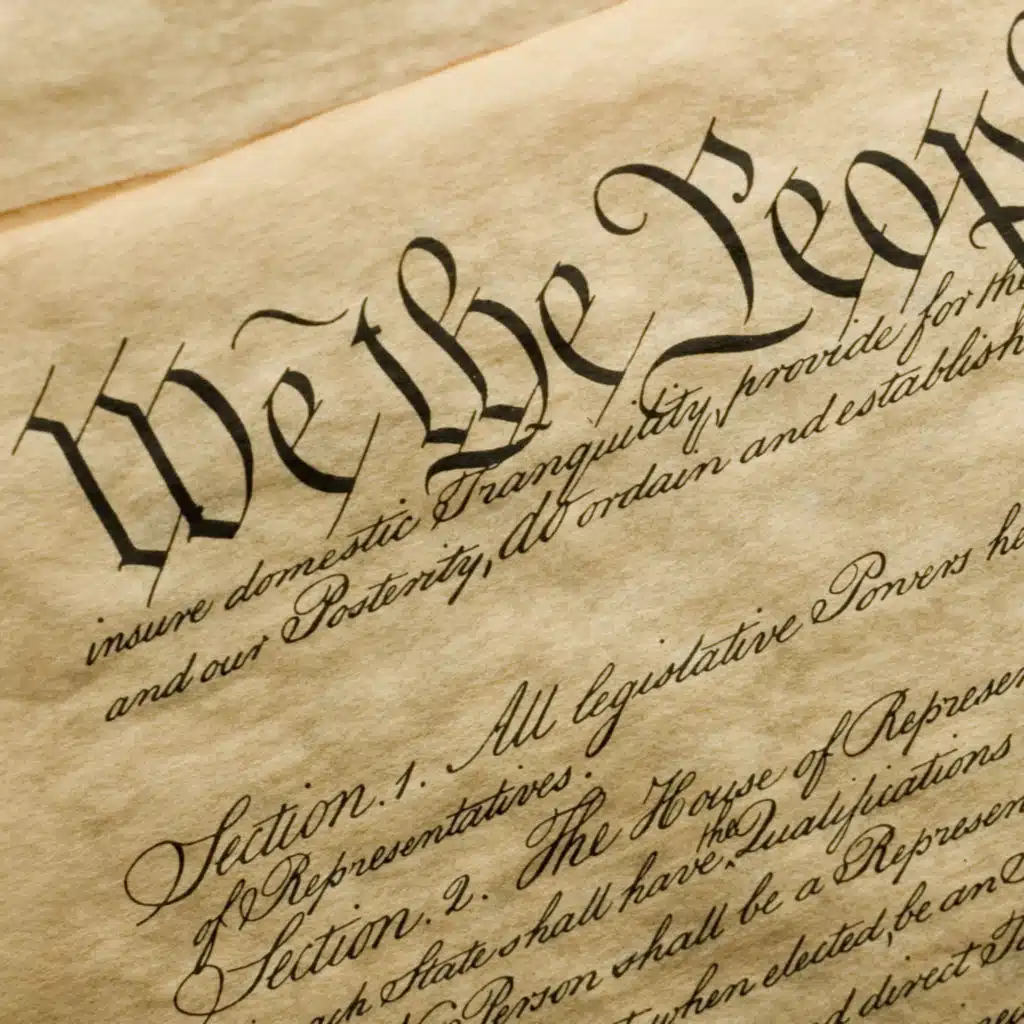 We the Peop
insure domestic Tranquility, provide for the
and our Posterity, do ordain and establish
Section. 1. All legislative Powers he
of Representatives.
Section. 2. The House of Represen
ach State shall have the Qualifications
Person shall be a Represen
when elected, be an
d direct Ta